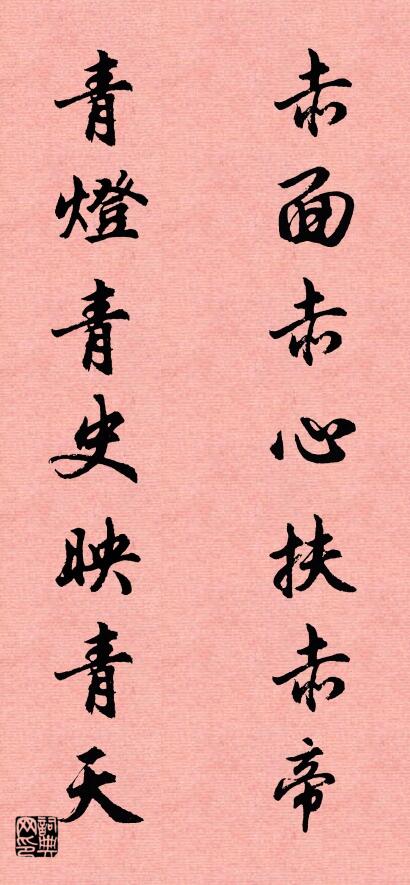 赤面赤心扶赤帝
青燈青史映青天
詞典網印